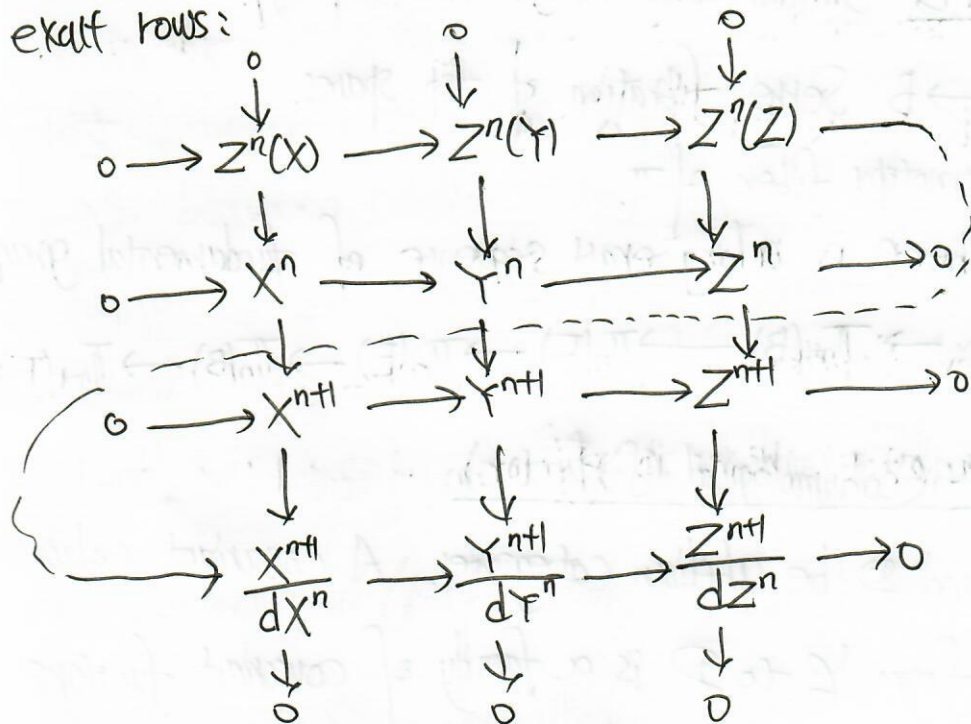 exact rows:
0 0 0
0 → Zⁿ(X) → Zⁿ(Y) → Zⁿ(Z)
0 → Xⁿ → Yⁿ → Zⁿ → 0
0 → Xⁿ⁺¹ → Yⁿ⁺¹ → Zⁿ⁺¹ → 0
Xⁿ⁺¹/dXⁿ → Yⁿ⁺¹/dYⁿ → Zⁿ⁺¹/dZⁿ → 0
0 0 0